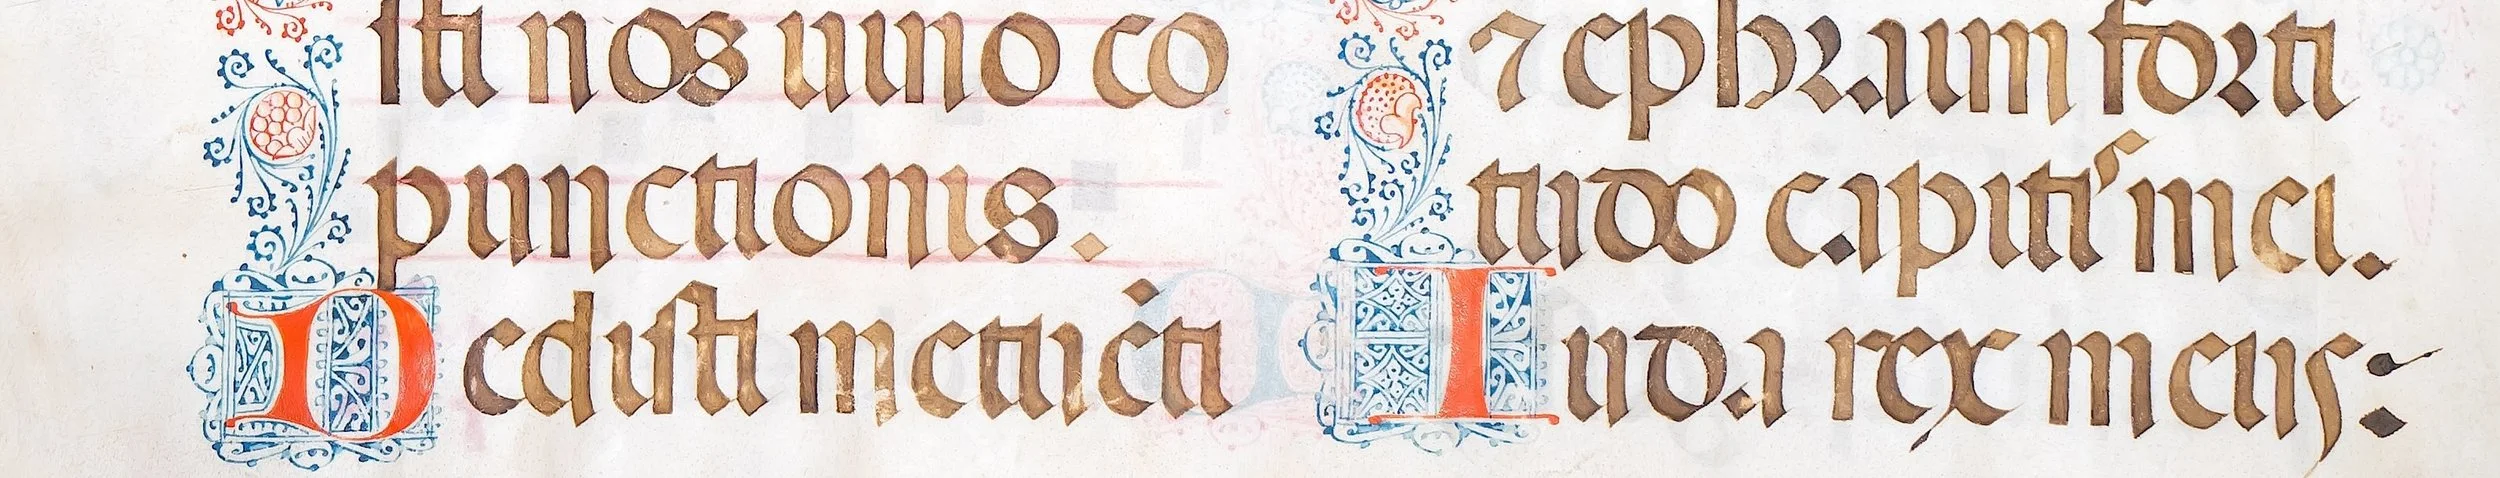 sti nos uino co
punctionis.
Dedisti metuēti
⁊ ephraim forti
tudo capitis mei.
Iuda rex meus: